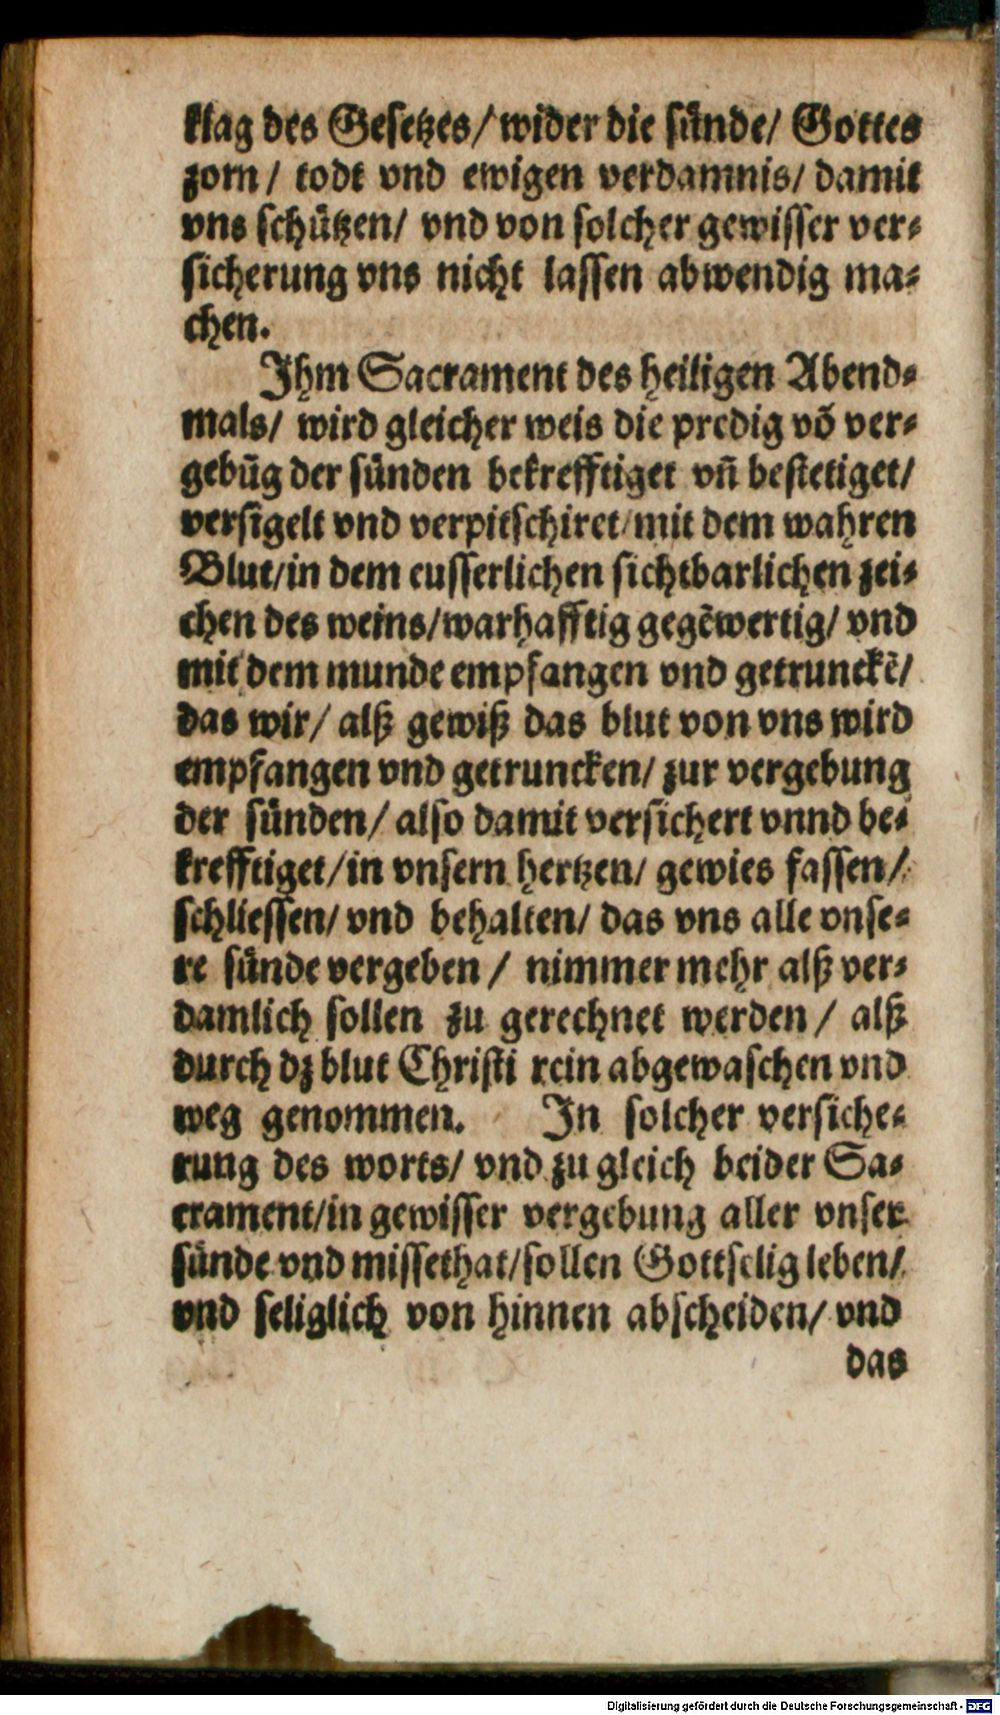 klag des Gesetzes/ wider die sünde/ Gottes
zorn/ todt vnd ewigen verdamnis/ damit
vns schützen/ vnd von solcher gewisser ver⸗
sicherung vns nicht lassen abwendig ma⸗
chen.
Ihm Sacrament des heiligen Abend⸗
mals/ wird gleicher weis die predig võ ver⸗
gebũg der sünden bekrefftiget vñ bestetiget/
versigelt vnd verpitschiret/ mit dem wahren
Blut/ in dem eusserlichen sichtbarlichen zei⸗
chen des weins/ warhafftig gegẽwertig/ vnd
mit dem munde empfangen vnd getrunckẽ/
das wir/ alß gewiß das blut von vns wird
empfangen vnd getruncken/ zur vergebung
der sünden/ also damit versichert vnnd be⸗
krefftiget/ in vnsern hertzen/ gewies fassen/
schliessen/ vnd behalten/ das vns alle vnse⸗
re sünde vergeben/ nimmer mehr alß ver⸗
damlich sollen zu gerechnet werden/ alß
durch dz blut Christi rein abgewaschen vnd
weg genommen. In solcher versiche⸗
rung des worts/ vnd zu gleich beider Sa⸗
crament/ in gewisser vergebung aller vnser
sünde vnd missethat/ sollen Gottselig leben/
vnd seliglich von hinnen abscheiden/ vnd
das
Digitalisierung gefördert durch die Deutsche Forschungsgemeinschaft - DFG